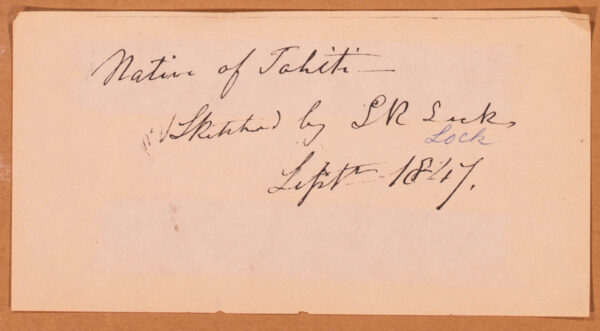 Native of Tahiti —
Sketched by L R Lock
Lock
Sept 1847.